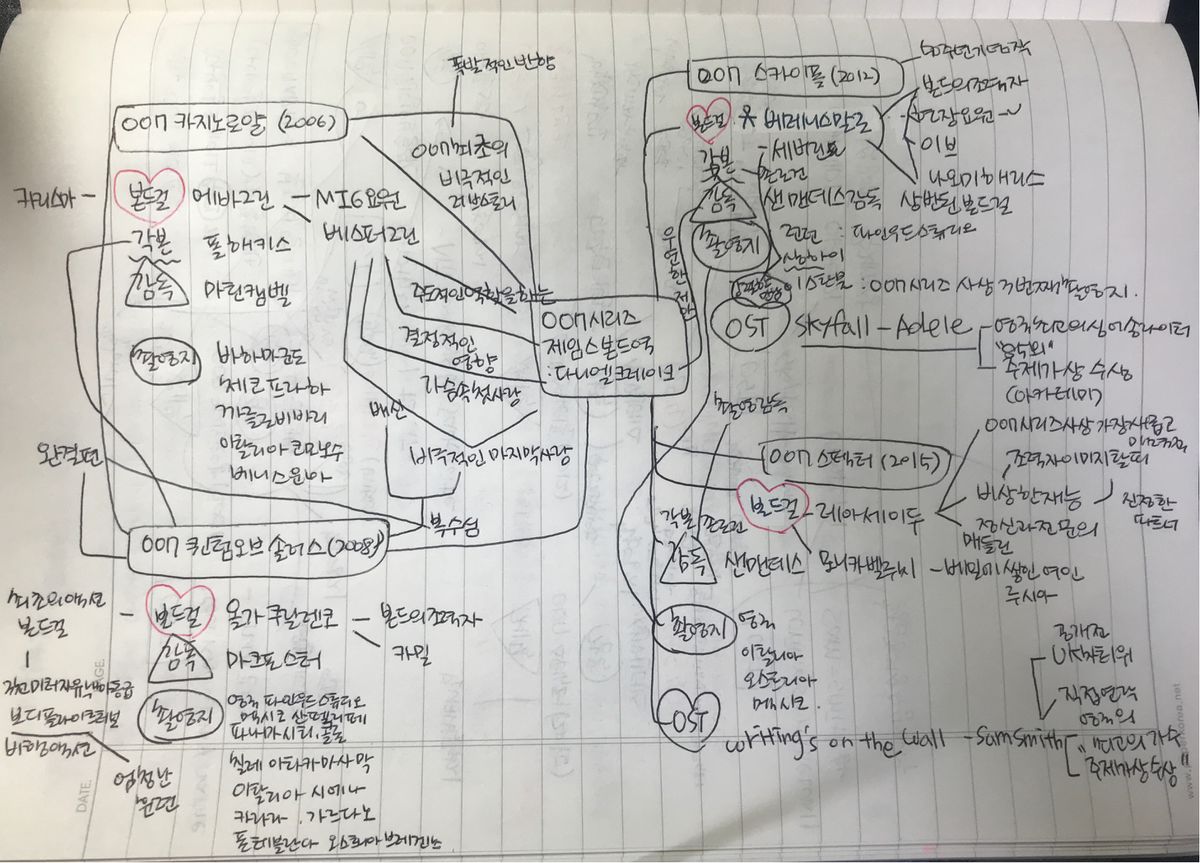 폭발적인 반향
007 카지노로얄 (2006)
007최초의
비극적인
러브스토리
카리스마
본드걸 에바그린 - MI6요원
베스퍼그린
각본 폴해키스
감독 마틴캠벨
주도적인역할을하는
결정적인
영향
가슴속첫사랑
배신
비극적인 마지막사랑
촬영지 바하마군도
체코프라하
까를로비바리
이탈리아코모호수
베니스운하
완결편
복수심
007시리즈
제임스본드역
:다니엘크레이그
007 퀀텀오브솔러스(2008)
최초의액션
본드걸
본드걸 올가쿠릴렌코 - 본드의조력자
카밀
감독 마크포스터
보디플라이트터널
비행액션
엄청난
훈련
촬영지 영국 파인우드스튜디오
멕시코 산펠리페
파나마시티, 콜론
칠레 아타카마사막
이탈리아 시에나
카라라. 가르다노
폴테블란다 오스트리아브레겐츠
007 스카이폴 (2012)
50주년기념작
본드걸 베레니스말로
본드의조력자
현장요원
이브
나오미해리스
상반된본드걸
세버린
각본 존로건
감독 샘맨데스감독
우운한
촬영지 런던 : 파인우드스튜디오
상하이
이스탄불 : 007시리즈 사상 3번째 촬영지.
OST Skyfall - Adele
영국최고의싱어송라이터
주제가상 수상
(아카데미)
촬영감독
007 스펙터 (2015)
007시리즈사상 가장새롭고
조력자이미지탈피
본드걸 - 레아세이두
비상한재능
진정한
파트너
정신과전문의
매들린
각본 존로건
감독 샘맨데스
모니카벨루찌 - 베일에쌓인여인
루시아
촬영지 영국
이탈리아
오스트리아
멕시코.
OST writting's on the wall - SamSmith
공개전
UK차트1위
직접연락
영국의
최고의가수
주제가상수상
DATE.
PAGE.